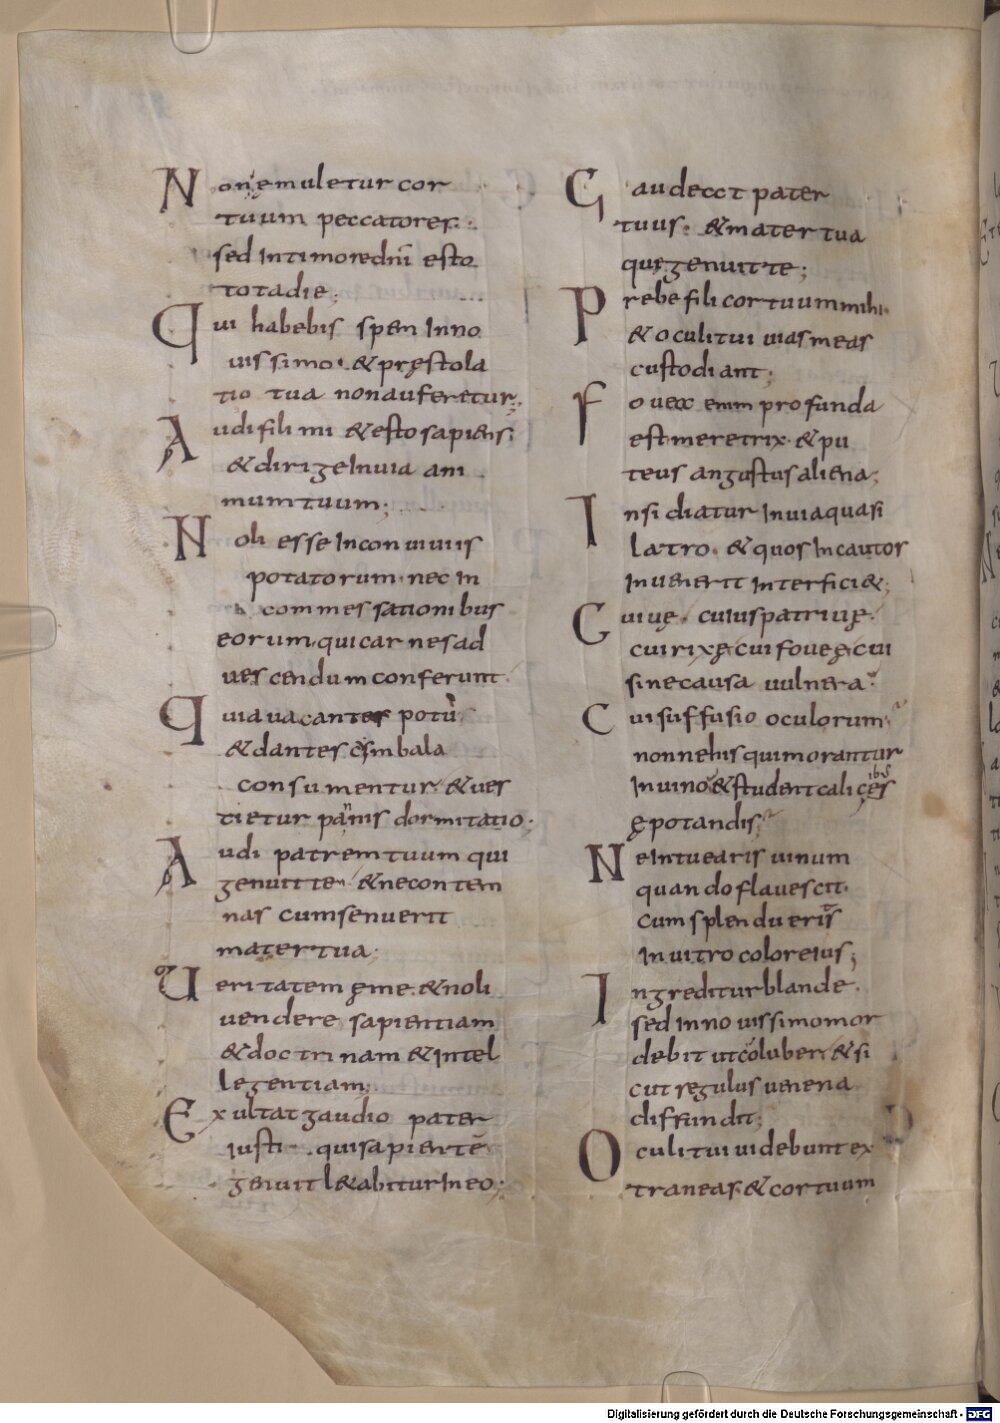 Non ęmuletur cor
tuum peccatores.
sed Intimore dn̄i esto
tota die;
Qui habebis spem Inno
uissimo. & pręstola
tio tua non auferetur;
Audi fili mi & esto sapiens;
& dirige Inuia ani
mum tuum;
Noli esse In conuiuiis
potatorum. nec In
commessationibus
eorum. qui carnes ad
uescendum conferunt.
Quia uacantes potū.
& dantes simbala
consumentur. & ues
tietur pannis dormitatio.
Audi patrem tuum qui
genuit te. & ne contem
nas cum senuerit
mater tua;
Ueritatem ęme. & noli
uendere sapientiam
& doctrinam & Intel
legentiam;
Exultat gaudio pater
iusti. qui sapientē
genuit l&abitur In eo;
Gaudeat pater
tuus. & mater tua
quę genuit te;
Prebe fili cor tuum mihi.
& oculi tui uias meas
custodiant;
Fouea enim profunda
est meretrix. & pu
teus angustus aliena;
Insidiatur Inuia quasi
latro. & quos Incautos
Inuenerit Interfici&;
Cui uę. cuius patri uę.
cui rixę cui foueę cui
sine causa uulnera.
Cui suffusio oculorum
nonne his qui morantur
In uino & student calicęs
ibus
ępotandis
Ne Intuearis uinum
quando flauescit.
cum splenduerit
In uitro color eius;
Ingreditur blande.
sed In nouissimo mor
debit ut coluber. & si
cut regulus uenena
diffundit;
Oculi tui uidebunt ex
traneas. & cor tuum
Digitalisierung gefördert durch die Deutsche Forschungsgemeinschaft - DFG